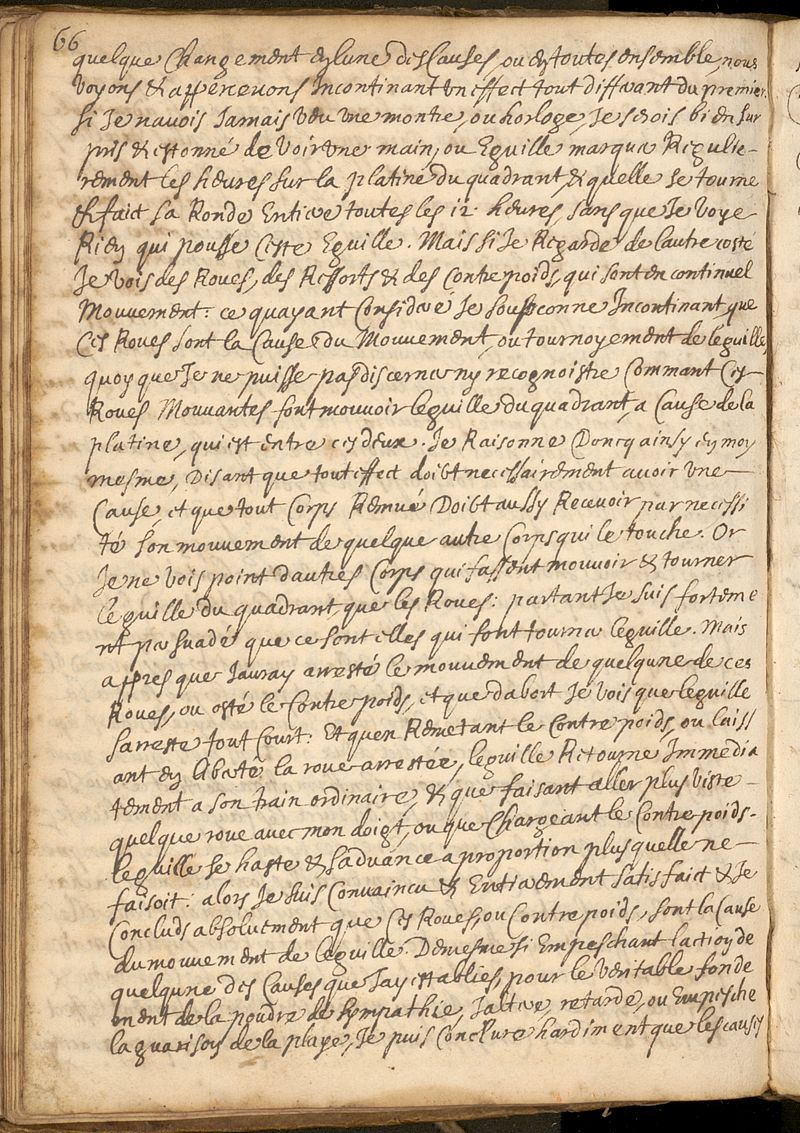 66
quelque Changement en lune des Causes, ou en toutes ensemble, nous
voyons & appercevons Incontinant un effect tout differant du premier.
Si Je navois Jamais veu une montre, ou horloge, Je serois bien sur
pris & estonné de voir une main, ou Eguille marquer Regulie-
rement les heures sur la platine du quadrant, & quelle se tourne
& fait sa Ronde Entiere toutes les 12 heures, sans que Je voye
Rien qui pousse Ceste Eguille. Mais si Je Regarde de lautre costé
Je vois des Roues, des Ressorts & des Contrepoids, qui sont en continuel
Mouvement: ce quayant Consideré Je soupconne Incontinant que
Ces Roues sont la Cause du Mouvement, ou tournoyement de leguille,
quoy que Je ne puisse pas discerner ny recognoistre Commant Ces
Roues Mouvantes font mouvoir leguille du quadrant, a Cause de la
platine, qui est entre ces deux. Je Raisonne Doncq ainsy en moy
mesme, Disant que tout effect doibt necessairement avoir une
Cause, et que tout Corps Remué Doibt aussy Recevoir par necessi
té son mouvement de quelque autre Corps qui le touche. Or
Je ne vois point dautres Corps qui fassent mouvoir & tourner
leguille du quadrant, que les Roues: partant Je suis forteme
nt persuadé que ce sont elles qui font tourner leguille. Mais
appres que Jauray arresté le mouvement de quelqune de ces
Roues, ou osté le Contrepoids, et que dabort Je vois que leguille
Sarreste tout Court: Et quen Remetant le Contrepoids, ou laiss
ant en liberté la roue arrestée, leguille Retourne Immedia
tement a son train ordinaire, & que faisant aller plus viste
quelque roue avec mon doigt, ou que Chargeant le Contrepoids.
leguille se haste & sadvance a proportion plus quelle ne
faisoit: alors Je suis Convaincu & Entierement satisfaict & Je
Concluds absolument que Ces Roues, ou Contrepoids, sont la Cause
du mouvement de leguille. Demesme si Empeschant laction de
quelqune des Causes que Jay establies, pour le veritable fonde
ment de la poudre de sympathie, Jaltere retarde, ou Empesche
la guarison de la playe, Je puis Conclure hardiment que les causes